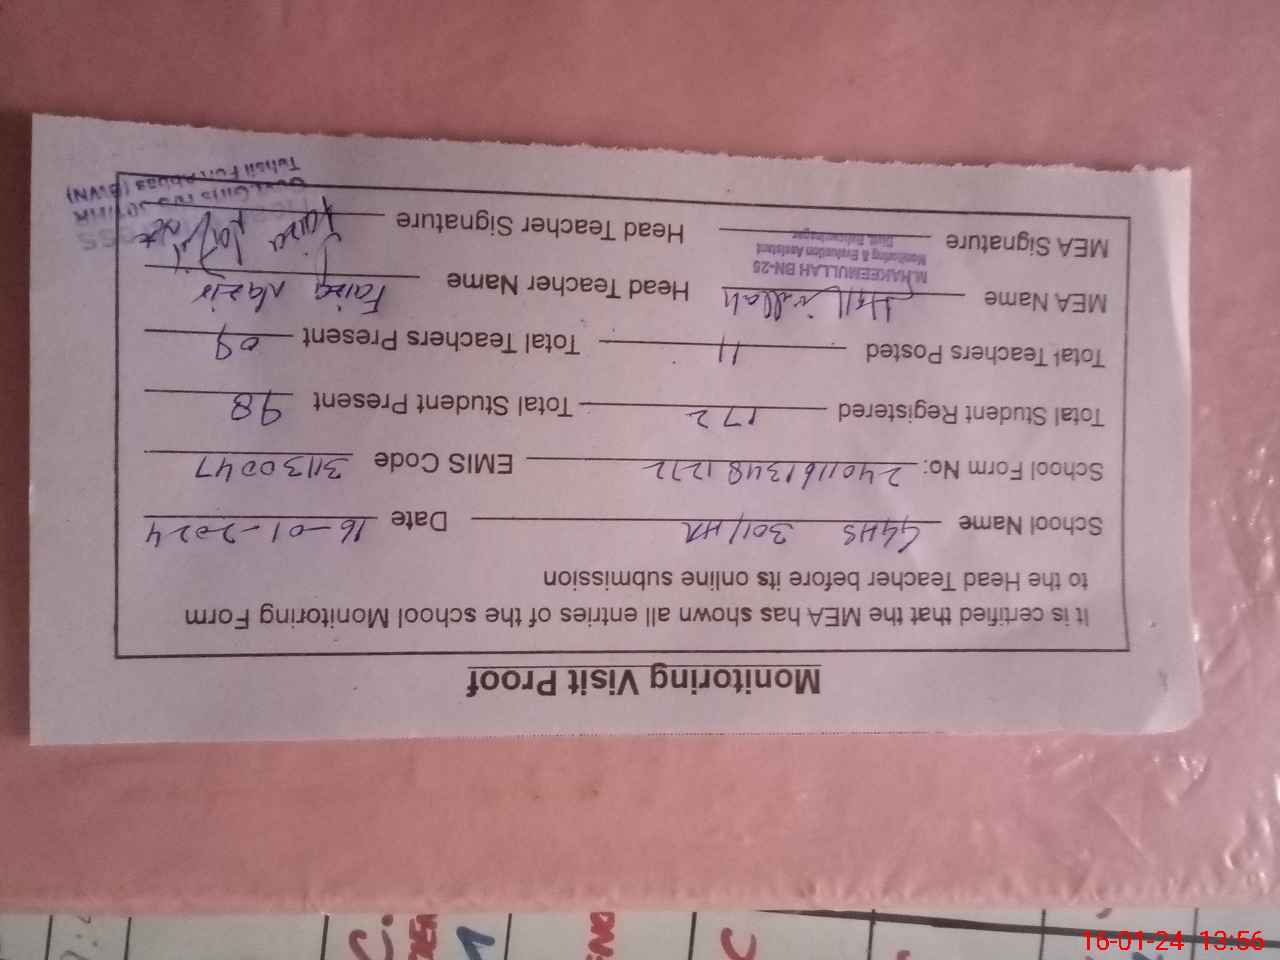 Monitoring Visit Proof
It is certified that the MEA has shown all entries of the school Monitoring Form
to the Head Teacher before its online submission
School Name GGHS 301/HR Date 16-01-2024
School Form No: 24011613481272 EMIS Code 31130047
Total Student Registered 172 Total Student Present 98
Total Teachers Posted 11 Total Teachers Present 09
MEA Name Head Teacher Name Faiza Nazir
M.HAKEEMULLAH BN-25
Monitoring & Evaluation Assistant
Distt. Bahawalnagar
MEA Signature Head Teacher Signature Faiza Nazir
Tehsil Fort Abbas (BWN)
16-01-24 13:56